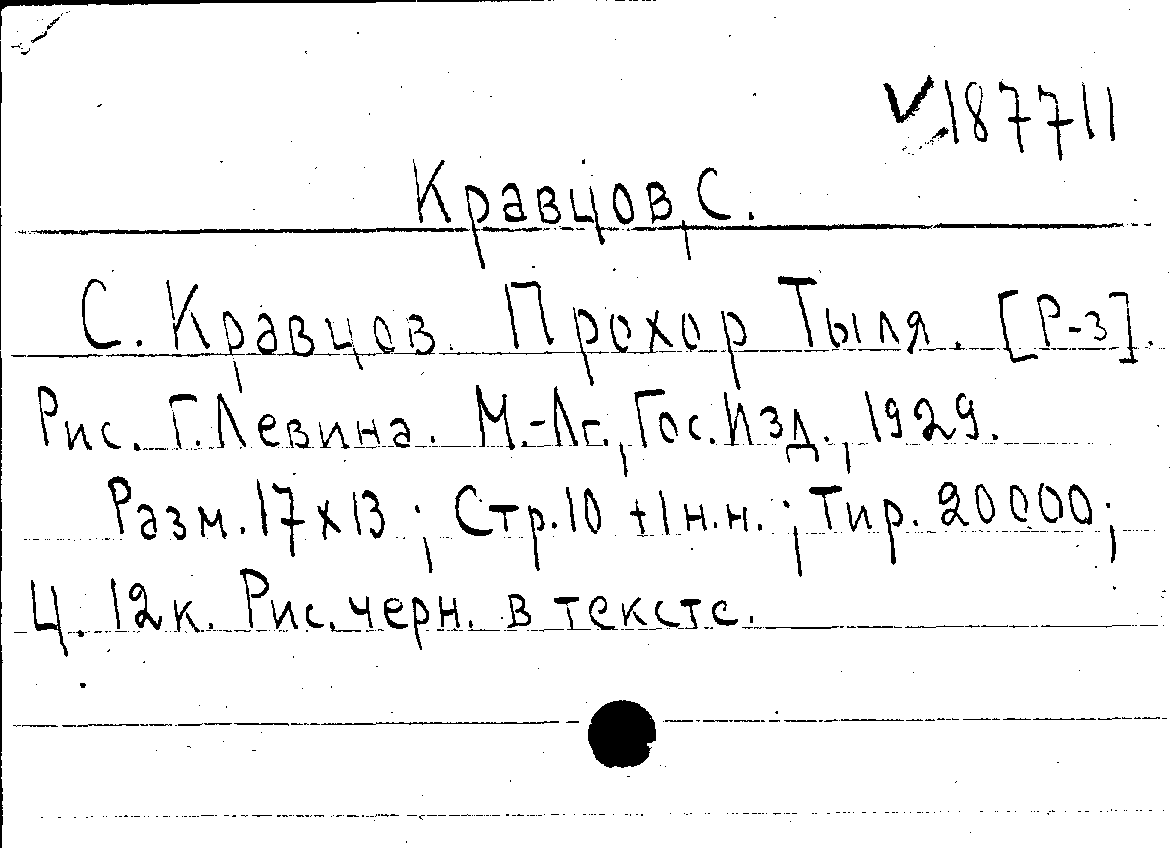 √187711
Кравцов, С.
С. Кравцов. Прохор Тыля. [Р-з].
Рис. Г. Левина. М.-Лг., Гос. Изд., 1929.
Разм. 17х13 ; Стр. 10 +1 н.н. ; Тир. 20000;
Ц. 12 к. Рис. черн. в тексте.